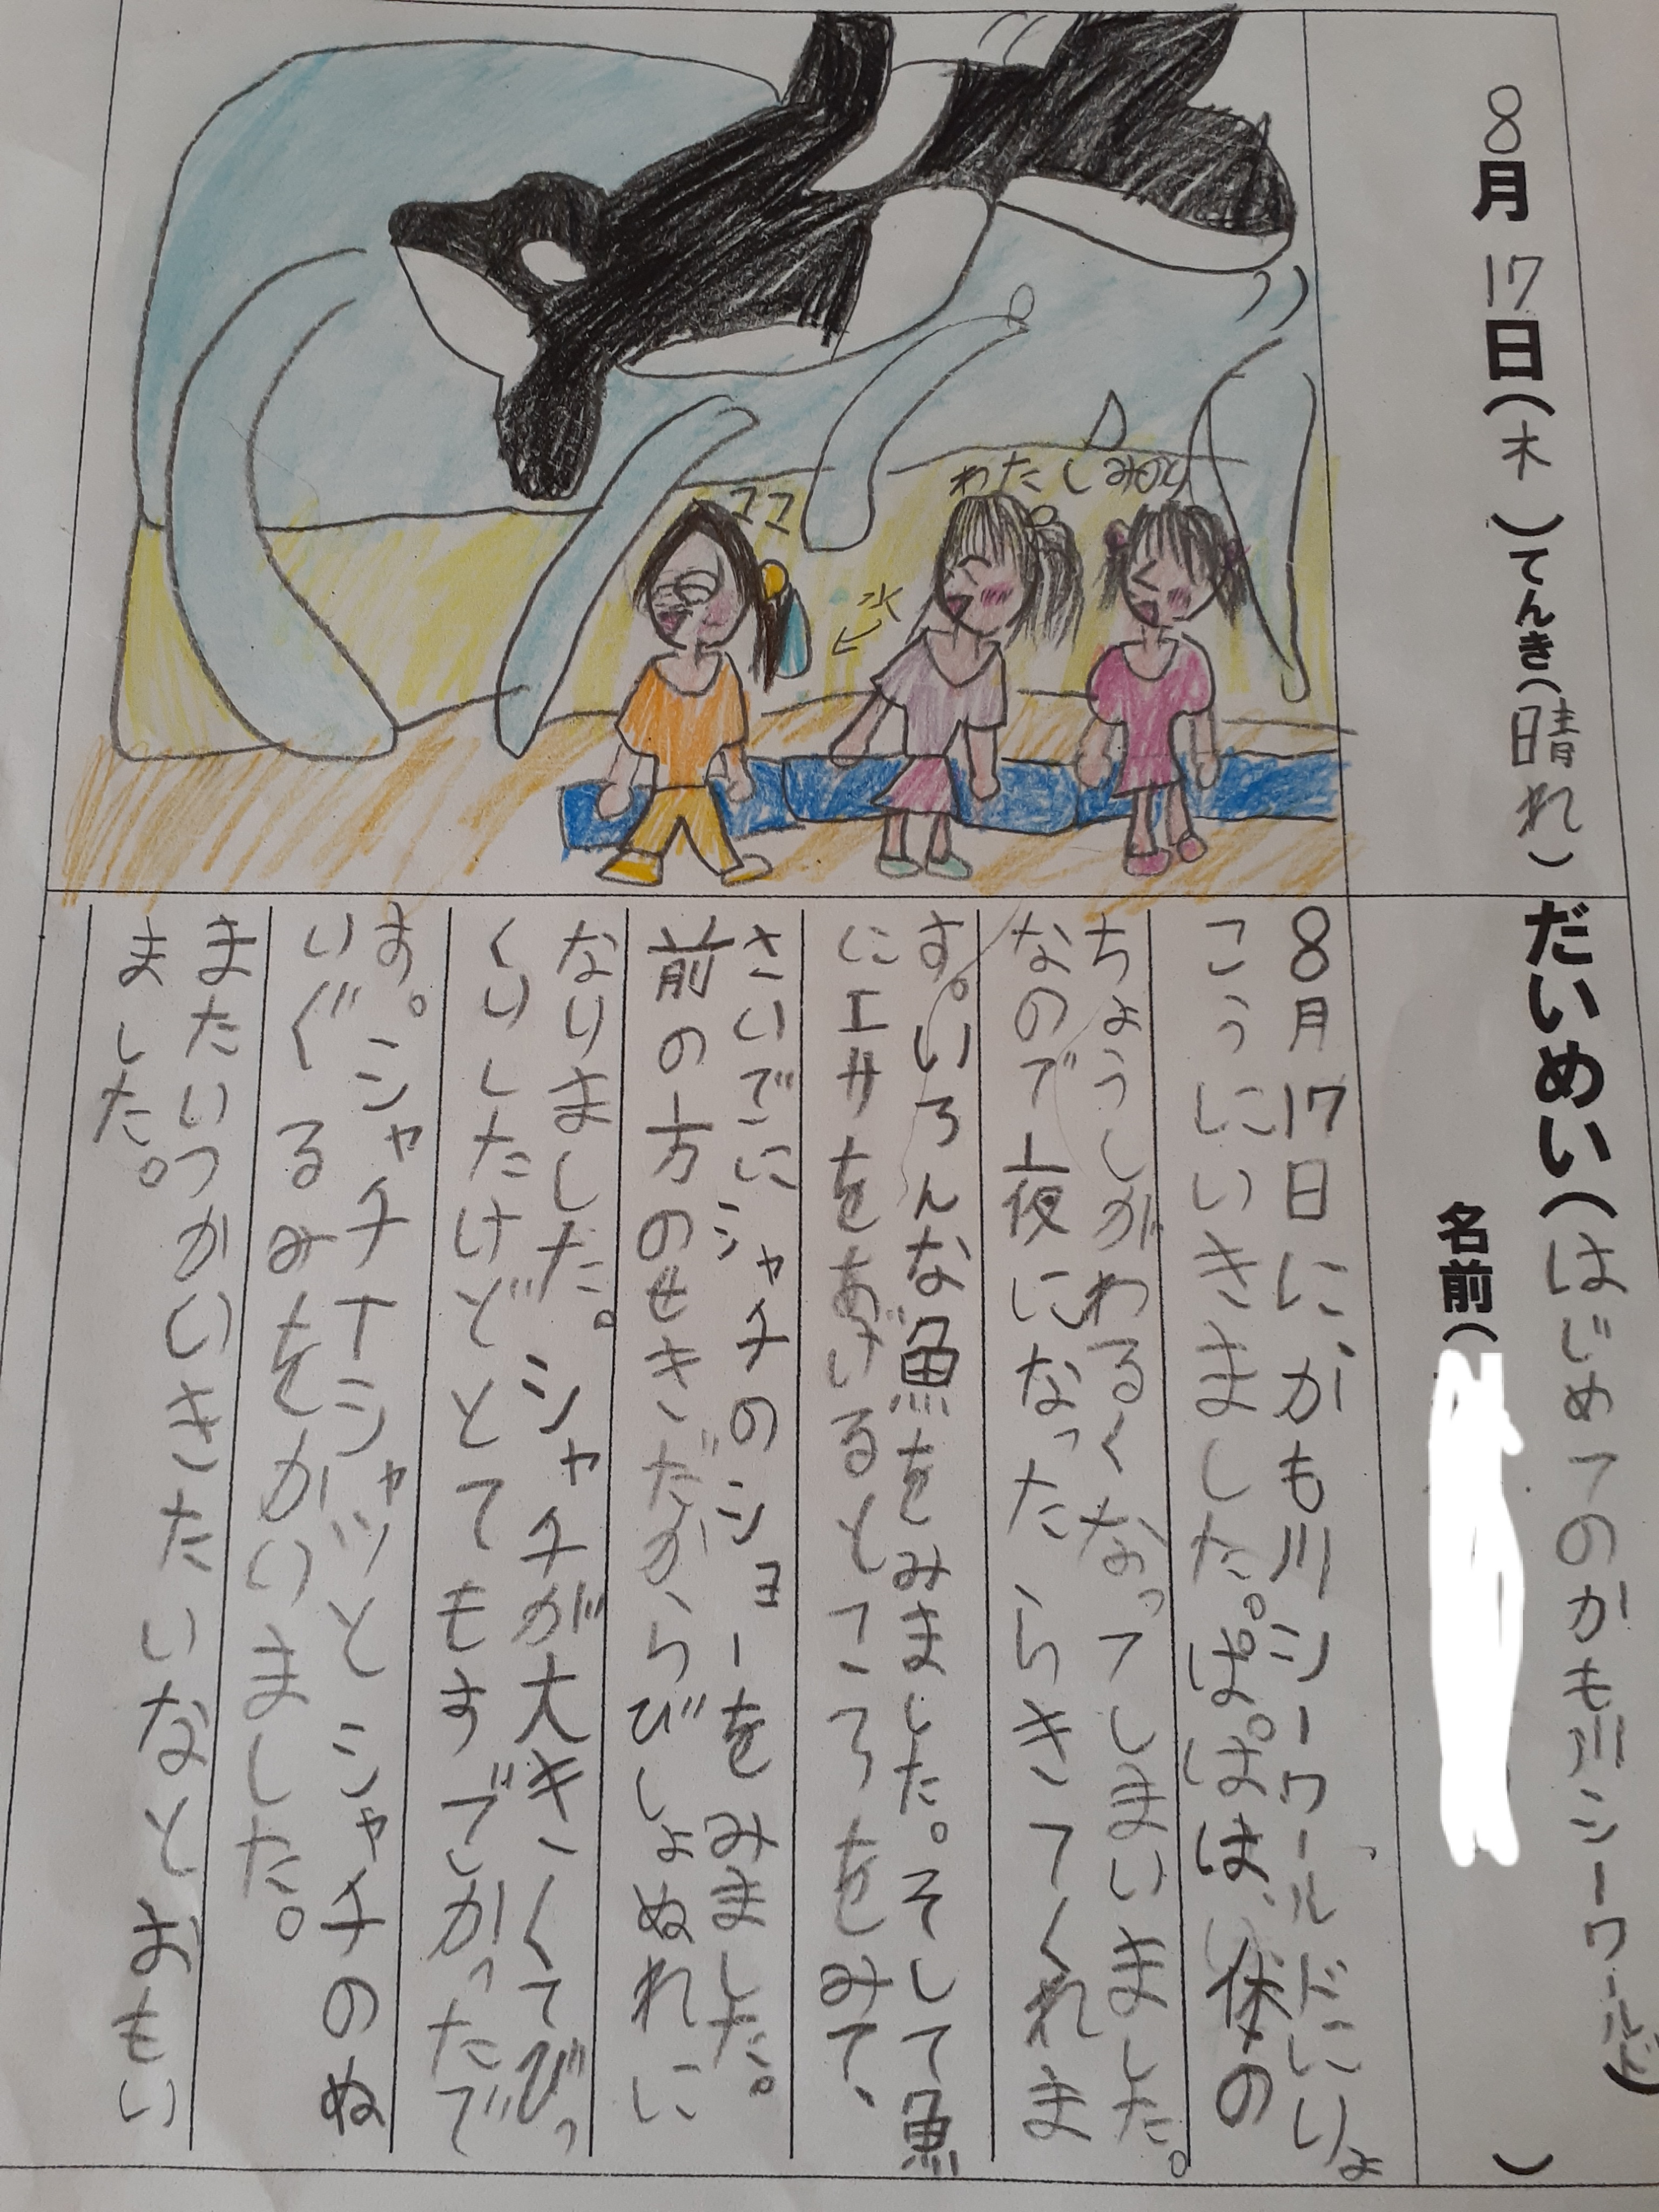 8月17日(木)てんき(晴れ)
だいめい(はじめてのかも川シーワールド)
名前(　)
ママ
わたし
みのり
水
8月17日に、かも川シーワールドにりょ
こうにいきました。ぱぱは、休の
ちょうしがわるくなってしまいました。
なので夜になったらきてくれま
す。いろんな魚をみました。そして魚
にエサをあげるところをみて、
さいごにシャチのショーをみました。
前の方のせきだから、びしょぬれに
なりました。シャチが大きくてびっ
くりしたけどとてもすごかったで
す。シャチTシャツとシャチのぬ
いぐるみをかいました。
またいつかいきたいなとおもい
ました。